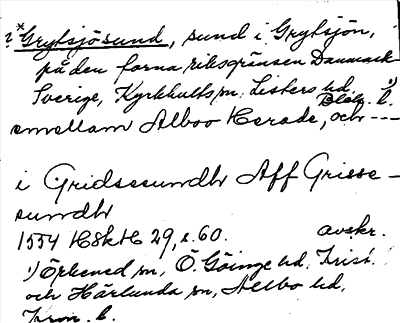 ?*Grytsjösund, sund i Grytsjön,
på den forna riksgränsen Danmark-
Sverige, Kyrkhults sn, Listers hd, 1)
Blek. l.
emellam Alboo Herade, och ---
i Gridsesundh Aff Grisse-
sundh
1554 HSkH 29, s. 60. avskr.
1) Örkened sn, Ö. Göinge hd, Krist.
och Härlunda sn, Allbo hd,
Kron. l.